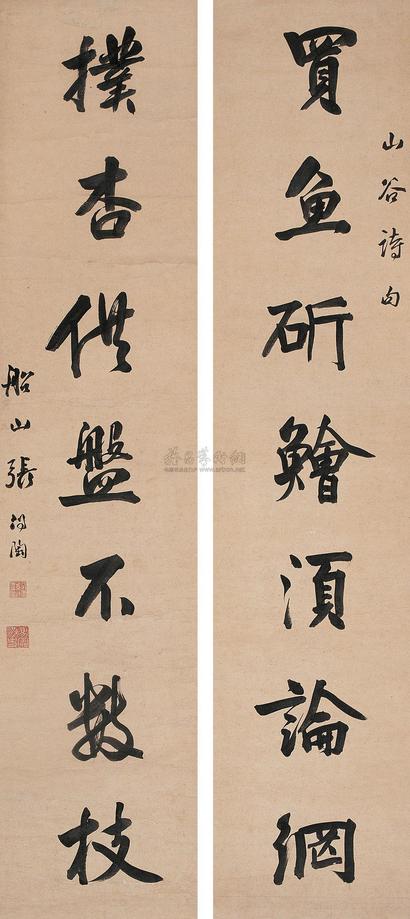 山谷诗句
買魚斫鱠須論網
撲杏供盤不數枝
船山張问陶